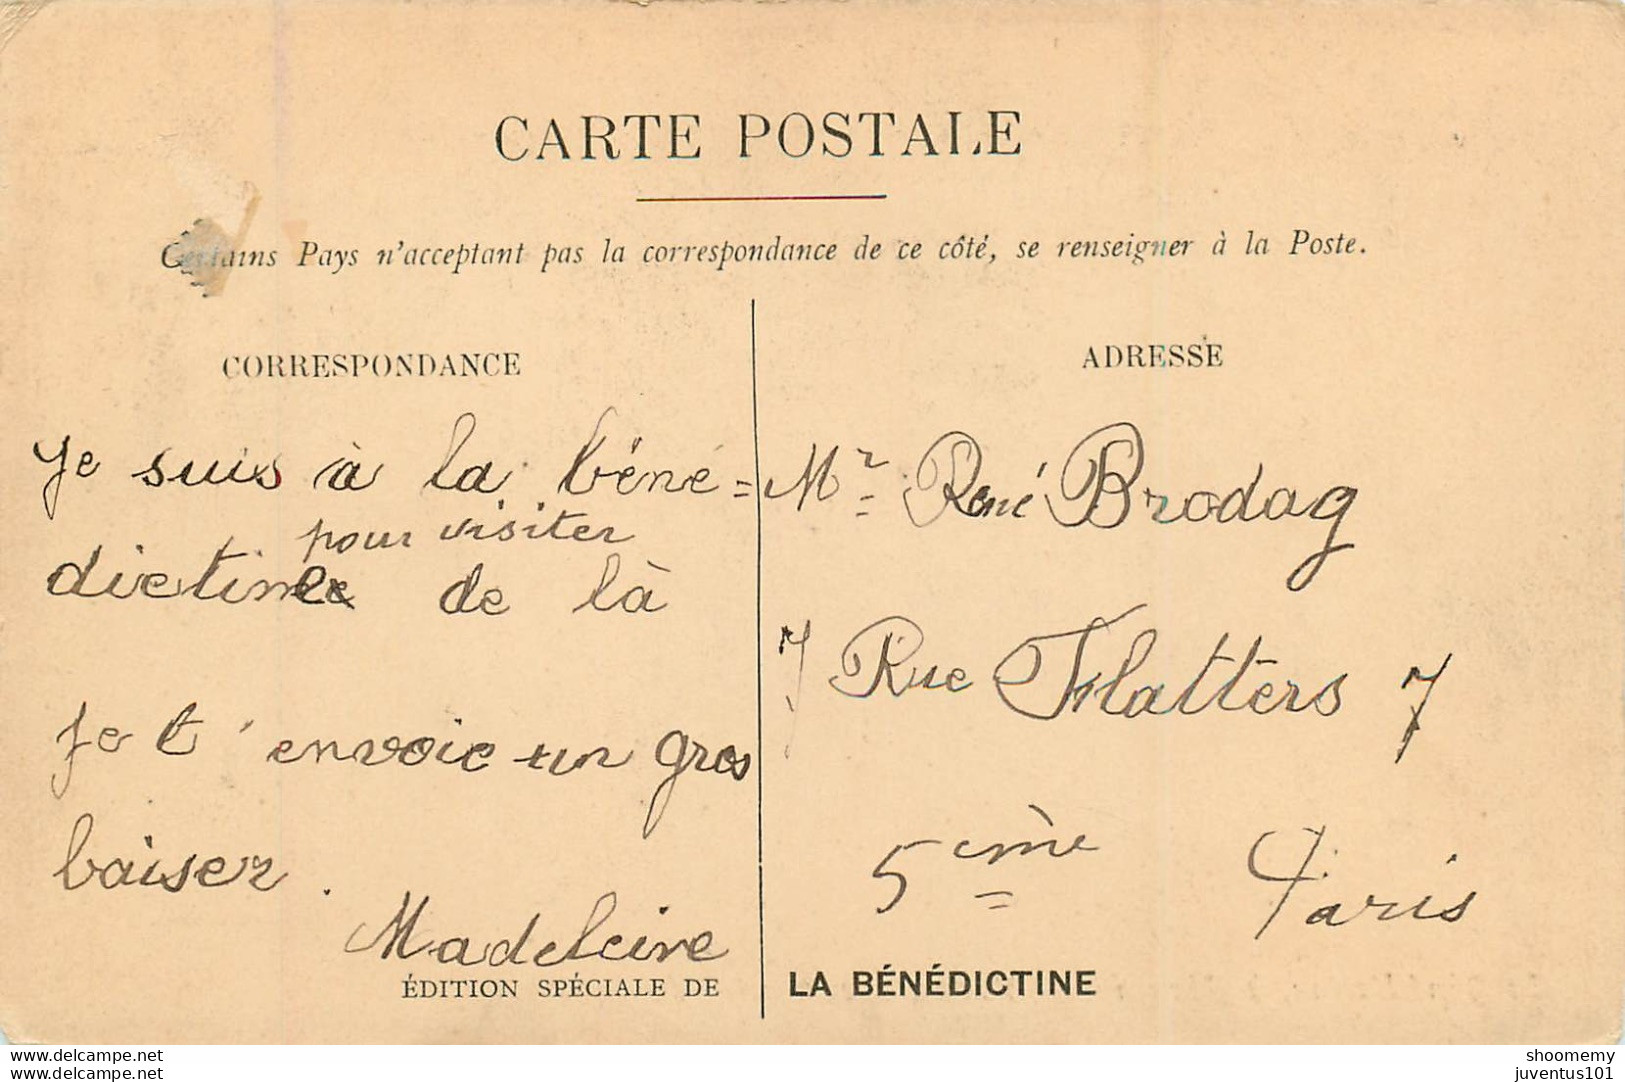 CARTE POSTALE
Certains Pays n'acceptant pas la correspondance de ce côté, se renseigner à la Poste.
CORRESPONDANCE
Je suis à la béné =
pour visiter
dictine de là
Je t'envoie un gros
baiser.
Madeleine
ÉDITION SPÉCIALE DE
ADRESSE
Mr René Brodag
7 Rue Flatters 7
5ème Paris
LA BÉNÉDICTINE
www.delcampe.net
www.delcampe.net
shoomemy
juventus101